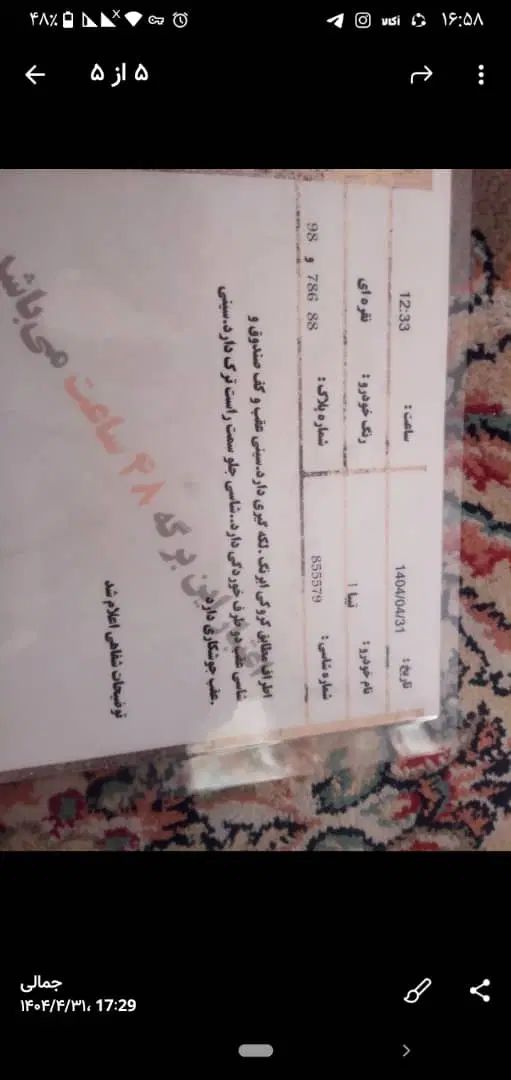 ۱۶:۵۸
آکالا
۴۸٪
۵ از ۵
تاریخ : 1404/04/31 ساعت : 12:33
نام خودرو : تیبا ۱ رنگ خودرو : نقره ای
شماره شاسی : 855579 شماره پلاک : 88 786 و 98
اطراف مطابق کروکی ابرنگ .لکه گیری دارد.سینی عقب و کف صندوق و
شاسی عقب دو طرف خوردگی دارد..شاسی جلو سمت راست ترک دارد.سینی
.عقب جوشکاری دارد
این برگه ۴۸ ساعت می‌باشد
توضیحات شفاهی اعلام شد
جمالی
۱۴۰۴/۴/۳۱، 17:29